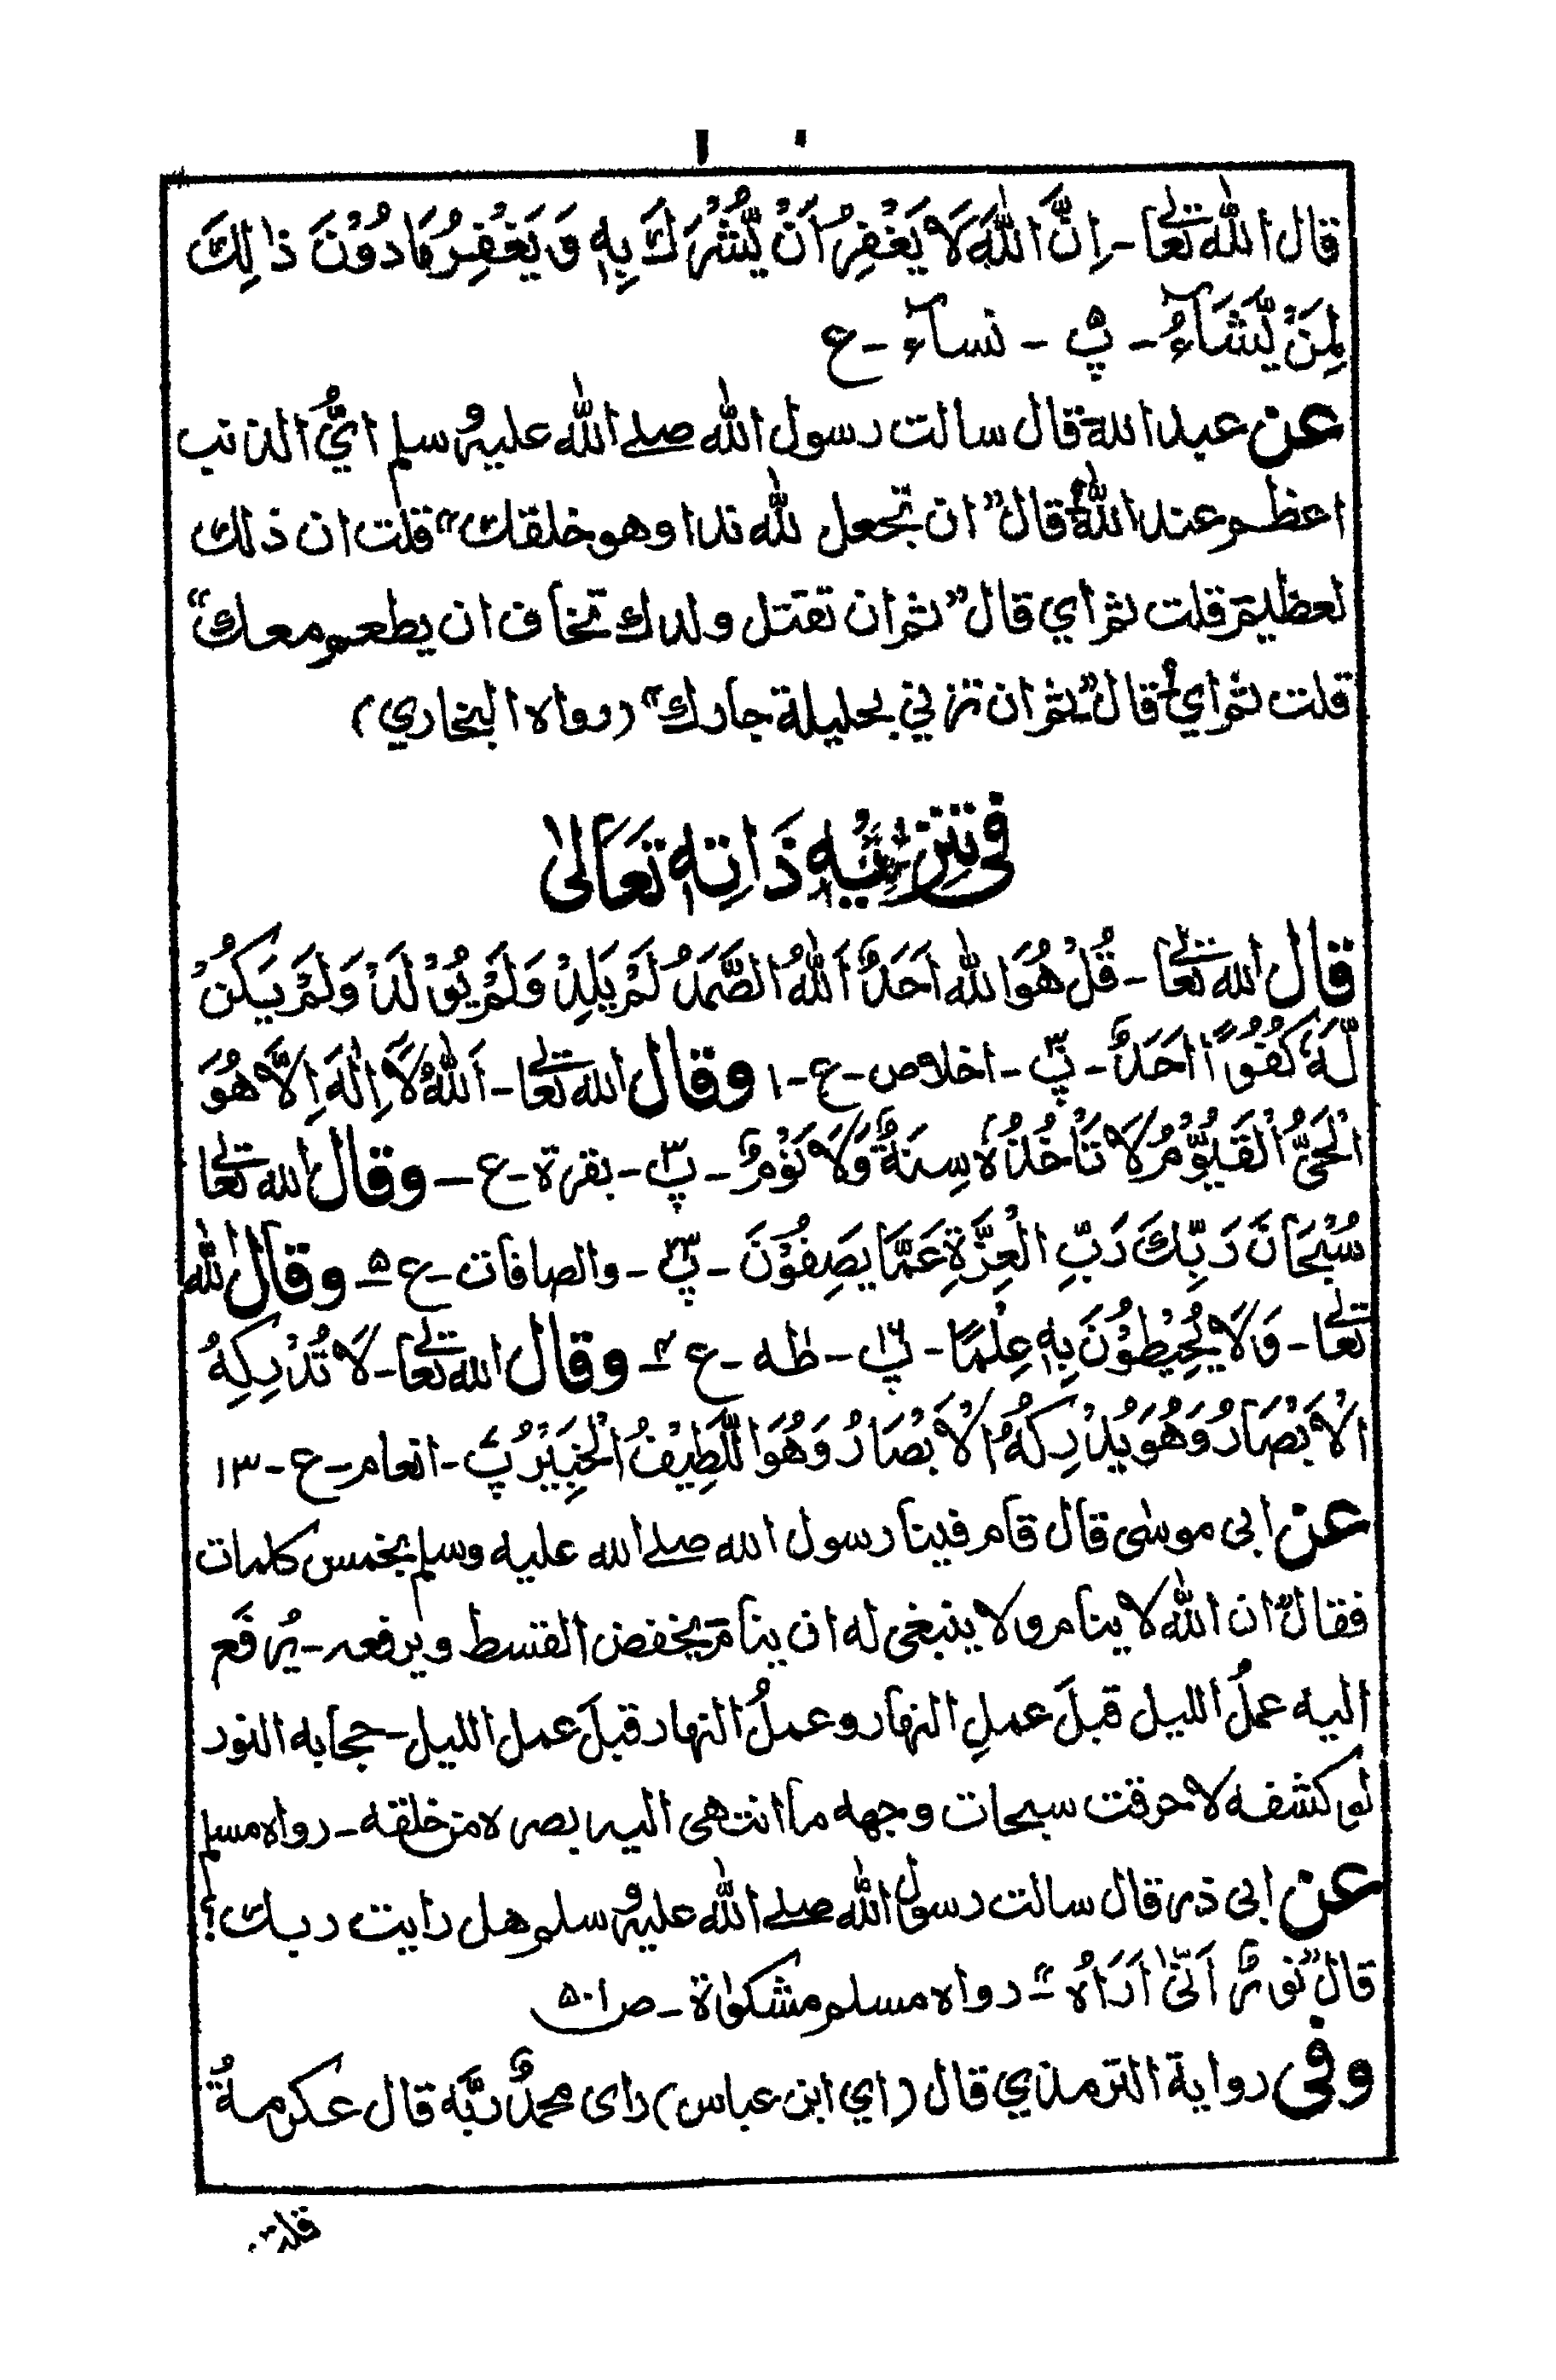 ۱۰
قال الله تعالى - اِنَّ اللّٰهَ لَا يَغْفِرُ اَنْ يُّشْرَكَ بِهٖ وَ يَغْفِرُ مَا دُوْنَ ذَالِكَ
لِمَنْ يَّشَآءُ - پ۵ - نسآء - ع
عن عبد الله قال سالت رسول الله صلے الله عليه وسلم ايُّ الذنب
اعظم عند الله؟ قال ”ان تجعل لله ندا وهو خلقك“ قلت ان ذلك
لعظيم قلت ثم اي قال ”ثم ان تقتل ولدك تخاف ان يطعم معك“
قلت ثم اي؟ قال ”ثم ان تزني بحليلة جارك“ (رواه البخاري)
فى تنزيه ذَاتِهٖ تَعَالىٰ
قال الله تعالى - قُلْ هُوَ اللهُ اَحَدٌ اَللّٰهُ الصَّمَدُ لَمْ يَلِدْ وَلَمْ يُوْلَدْ وَلَمْ يَكُنْ
لَّهٗ كُفُوًا اَحَدٌ - پ۳۰ - اخلاص - ع - ۱ وقال الله تعالى - اَللّٰهُ لَا اِلٰهَ اِلَّا هُوَ
الْحَيُّ الْقَيُّوْمُ لَا تَاْخُذُهٗ سِنَةٌ وَّلَا نَوْمٌ - پ۳ - بقرة - ع - وقال الله تعالى
سُبْحَانَ رَبِّكَ رَبِّ الْعِزَّةِ عَمَّا يَصِفُوْنَ - پ۲۳ - والصافات - ع ۵ - وقال الله
تعالى - وَلَا يُحِيْطُوْنَ بِهٖ عِلْمًا - پ۱۶ - طٰهٰ - ع ۴ - وقال الله تعالى - لَا تُدْرِكُهُ
الْاَبْصَارُ وَهُوَ يُدْرِكُ الْاَبْصَارُ وَهُوَ اللَّطِيْفُ الْخَبِيْرُ پ۷ - انعام - ع - ۱۳
عن ابى موسٰى قال قام فينا رسول الله صلے الله عليه وسلم بخمس كلمات
فقال ”ان الله لا ينام ولا ينبغى له ان ينام يخفض القسط ويرفعه - يُرفَع
اليه عملُ الليل قبلَ عملِ النهار وعملُ النهار قبلَ عمل الليل - حجابه النور
لو كشفه لاحرقت سبحات وجهه ما انتهى اليه بصره من خلقه - رواه مسلم
عن ابى ذر قال سالت رسول الله صلے الله عليه وسلم هل رايت ربك؟
قال ”نورٌ اَنّٰى اَرَاهُ“ - رواه مسلم مشكوٰة - ص ۵۰۱
وفى رواية الترمذي قال (اي ابن عباس) راى محمدٌ ربَّه قال عكرمةُ
قلت